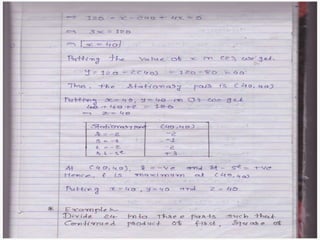 ⇒ 120 - x - 240 + 4x = 0
⇒ 3x = 120
⇒ x = 40
Putting the value of x in (2), we get
y = 120 - 2(40) = 120 - 80 = 40
Thus, the stationary pair is (40,40)
Putting x = 40, y = 40 in (1) we get
40 + 40 + z = 120
⇒ z = 40
Stationary pair (40,40)
r = -2 -2
s = -1 -1
t = -2 -2
rt - s² +3
At (40,40), r = -ve and rt - s² = +ve
Hence, f is maximum at (40,40)
Putting x = 40, y = 40 and z = 40.
* Example
Divide 24 into three parts such that
Continued product of first, square of